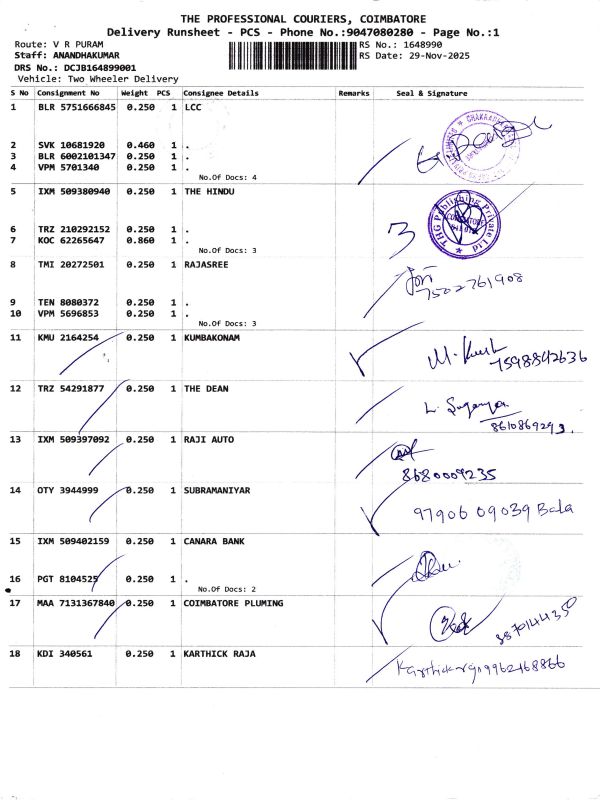 THE PROFESSIONAL COURIERS, COIMBATORE
Delivery Runsheet - PCS - Phone No.:9047080280 - Page No.:1
Route: V R PURAM RS No.: 1648990
Staff: ANANDHAKUMAR RS Date: 29-Nov-2025
DRS No.: DCJB164899001
Vehicle: Two Wheeler Delivery
S No Consignment No Weight PCS Consignee Details Remarks Seal & Signature
1 BLR 5751666845 0.250 1 LCC
2 SVK 10681920 0.460 1 .
3 BLR 6002101347 0.250 1 .
4 VPM 5701340 0.250 1 .
No.Of Docs: 4
5 IXM 509380940 0.250 1 THE HINDU
THG Publishing Private Ltd
6 TRZ 210292152 0.250 1 .
3
7 KOC 62265647 0.860 1 .
No.Of Docs: 3
8 TMI 20272501 0.250 1 RAJASREE
7502761908
9 TEN 8080372 0.250 1 .
10 VPM 5696853 0.250 1 .
No.Of Docs: 3
11 KMU 2164254 0.250 1 KUMBAKONAM
7598842636
12 TRZ 54291877 0.250 1 THE DEAN
8610869293.
13 IXM 509397092 0.250 1 RAJI AUTO
8680009235
14 OTY 3944999 0.250 1 SUBRAMANIYAR
97906 09039 Bala
15 IXM 509402159 0.250 1 CANARA BANK
16 PGT 8104525 0.250 1 .
No.Of Docs: 2
17 MAA 7131367840 0.250 1 COIMBATORE PLUMING
18 KDI 340561 0.250 1 KARTHICK RAJA
9962468866